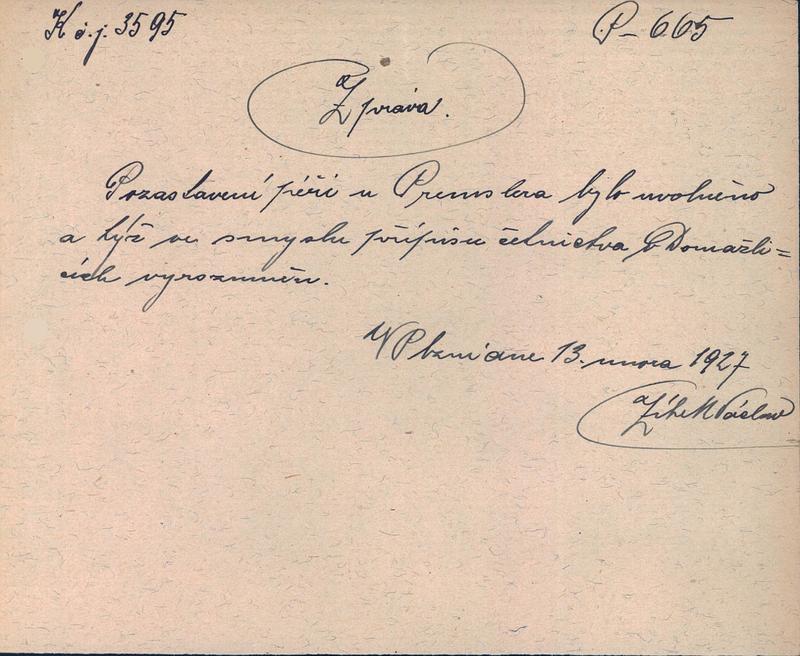 K č.j. 3595
P-665
Zpráva.
Pozastavení péří u Premslera bylo uvolněno
a týž ve smyslu přípisu četnictva v Domažli=
cích vyrozuměn.
V Plzni dne 13. února 1927
Václav